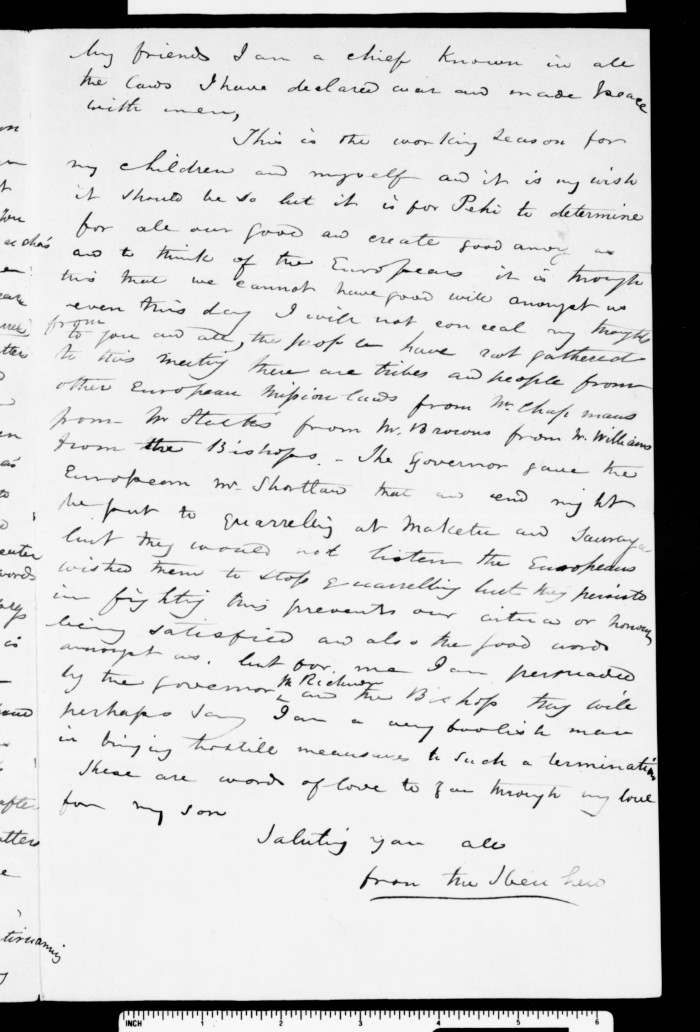 My friends I am a chief known in all
the laws I have declared war and made peace
with men,
This is the working season for
my children and myself and it is my wish
it should be so but it is for Pehi to determine
for all our good and create good among us
and to think of the Europeans it is through
this that we cannot have good will amongst us
even this day I will not conceal my thoughts
from
to you and all, the people have not gathered
to this meeting there are tribes and people from
other European Mission lands from Mr. Chapmans
from Mr Stacks from Mr. Browns from Mr. Williams
from the Bishops. – The Governor gave the
European Mr. Shortland that an end might
be put to quarreling at Maketu and
but they would not listen the Europeans
wished them to stop quarrelling but they persisted
in fighting this prevents our or
being satisfied and also the good words
amongst us. but for me I am persuaded
by the Governor Mr and the Bishop they will
perhaps say I am a very foolish man
in bringing hostile measures to such a termination
These are words of love to you through my love
for my son
Saluting you all
from
you
words
is
after